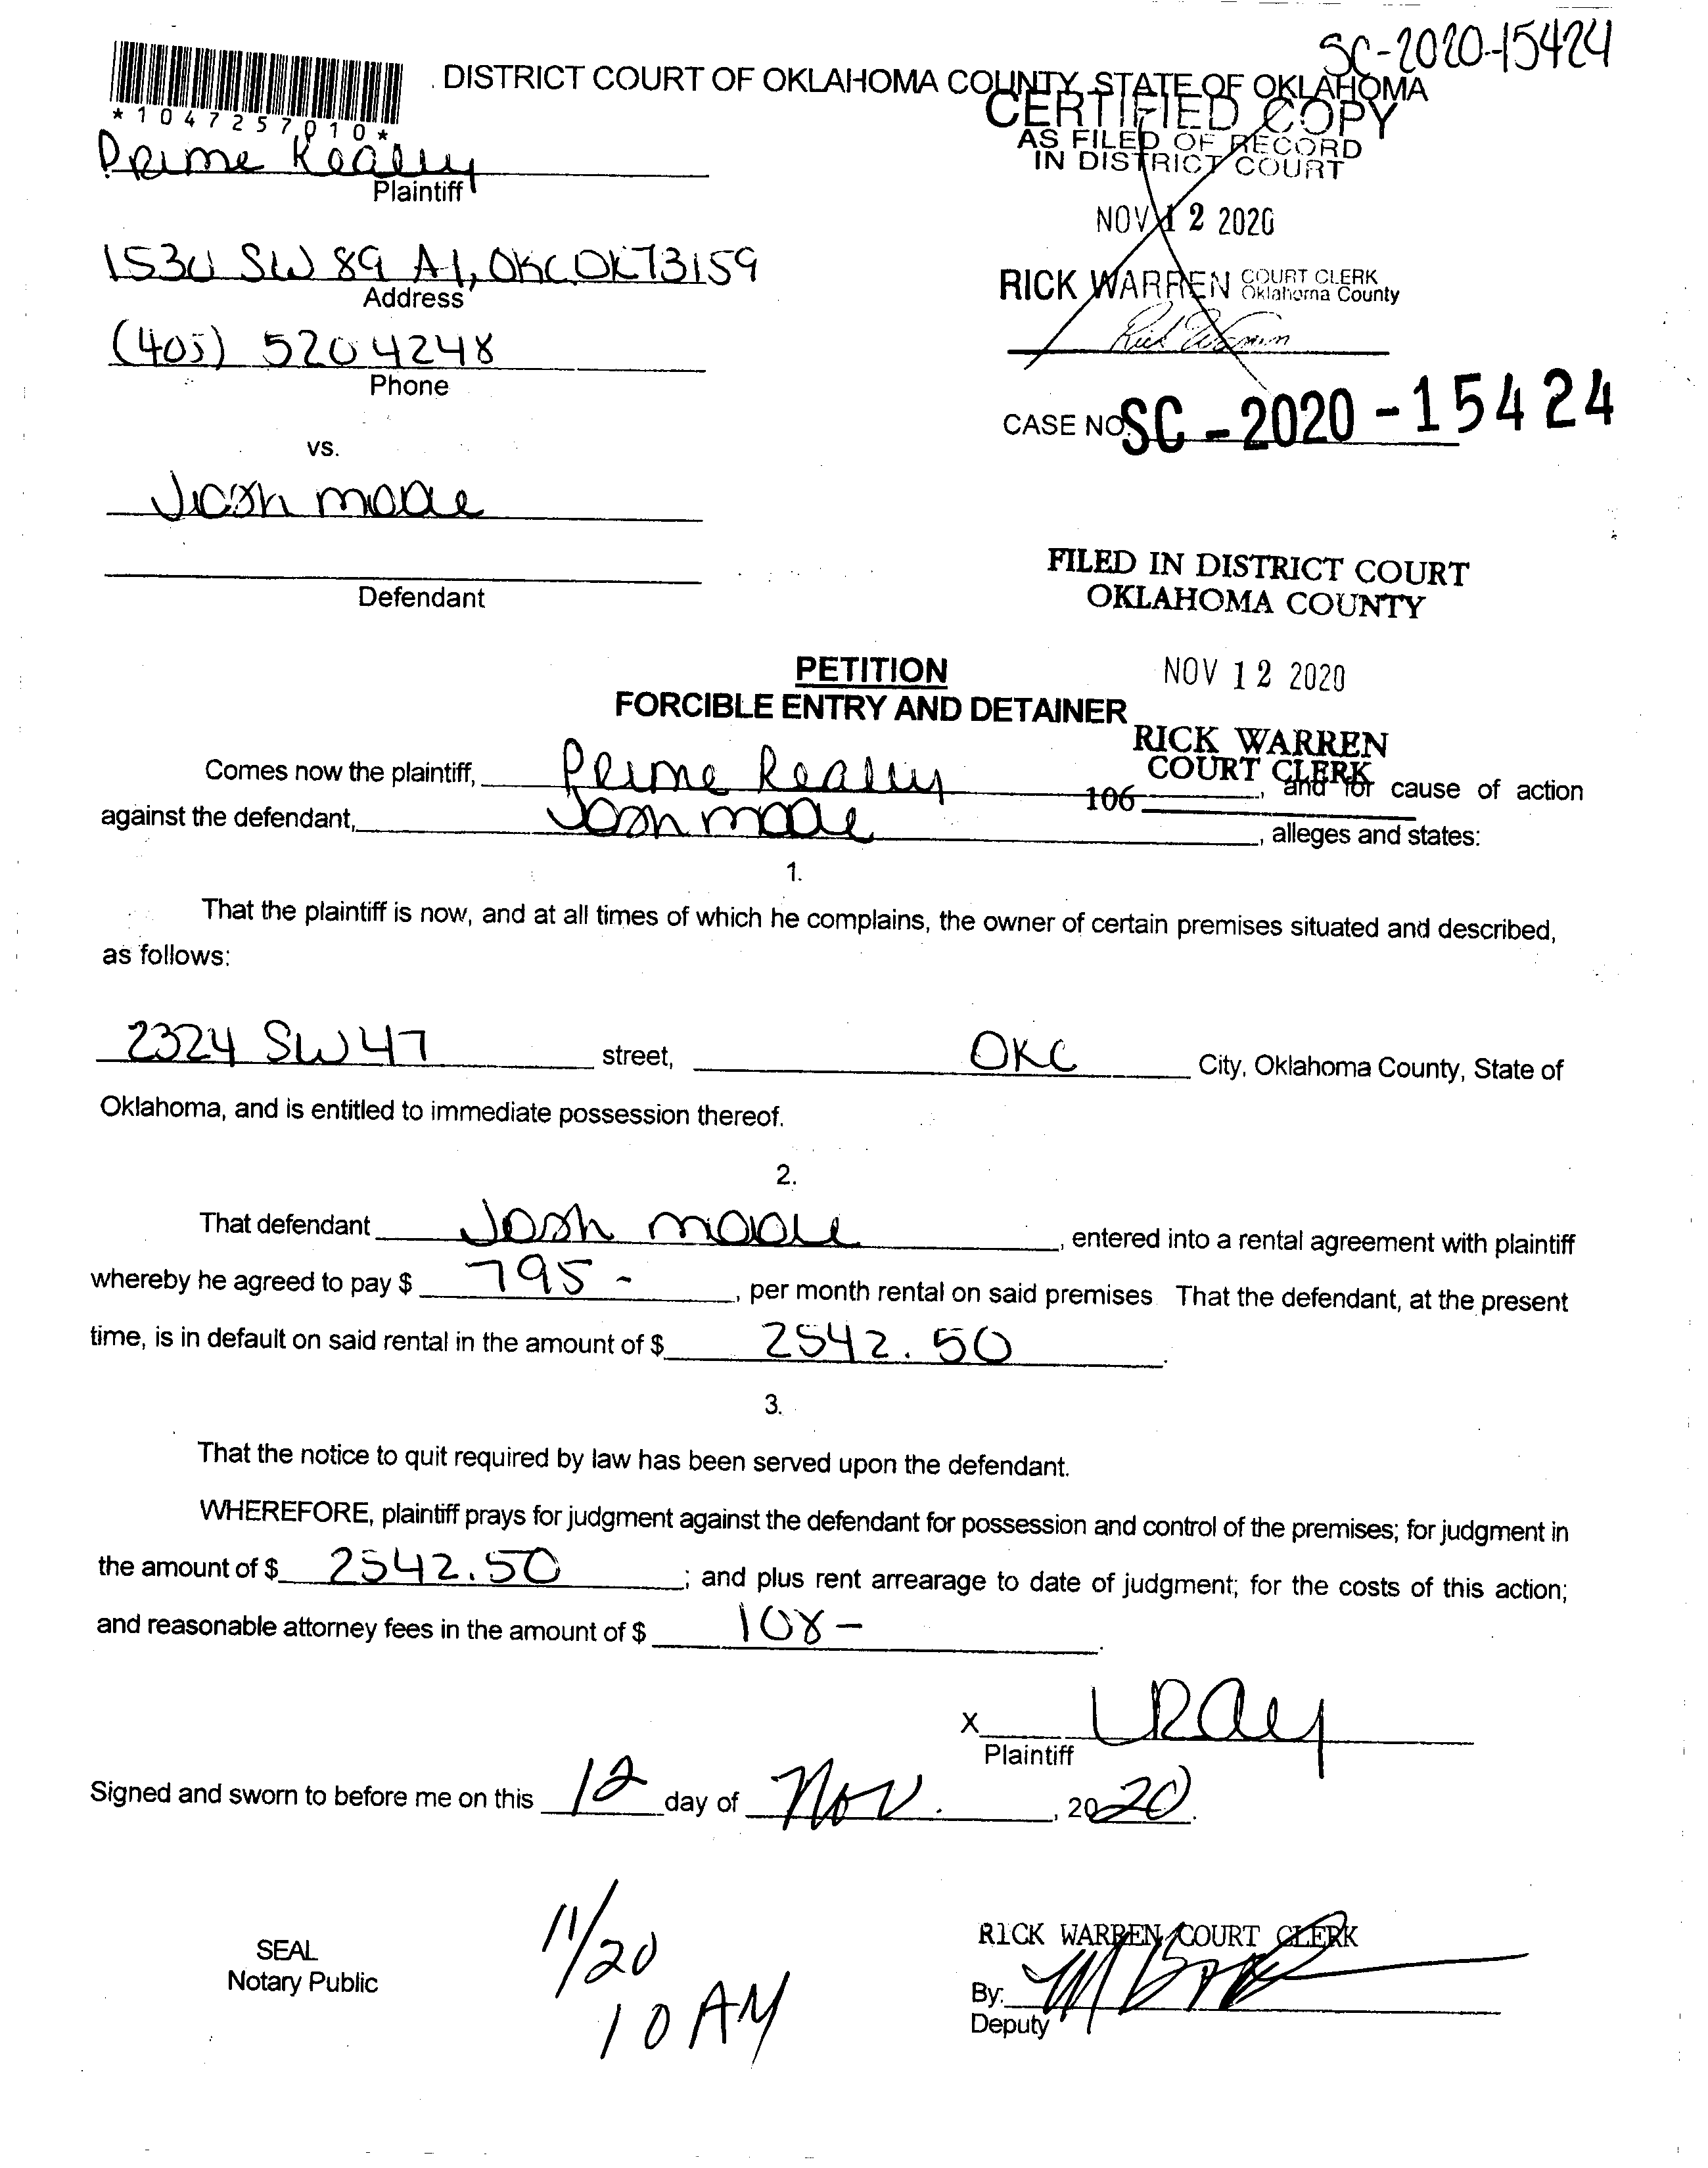 SC-2020-15424
DISTRICT COURT OF OKLAHOMA COUNTY, STATE OF OKLAHOMA
*1047257010*
CERTIFIED COPY
AS FILED OF RECORD
IN DISTRICT COURT
Prime Realty
Plaintiff
NOV 12 2020
1530 SW 89 A1, OKC OK 73159
Address
RICK WARREN COURT CLERK
Oklahoma County
Rick Warren
(405) 520 4248
Phone
CASE NO. SC-2020-15424
vs.
Josh Moore
Defendant
FILED IN DISTRICT COURT
OKLAHOMA COUNTY
PETITION
NOV 12 2020
FORCIBLE ENTRY AND DETAINER
RICK WARREN
COURT CLERK
106
Comes now the plaintiff, Prime Realty, and for cause of action
against the defendant, Josh Moore, alleges and states:
1.
That the plaintiff is now, and at all times of which he complains, the owner of certain premises situated and described,
as follows:
2324 SW 47 street, OKC City, Oklahoma County, State of
Oklahoma, and is entitled to immediate possession thereof.
2.
That defendant Josh Moore, entered into a rental agreement with plaintiff
whereby he agreed to pay $ 795 -, per month rental on said premises. That the defendant, at the present
time, is in default on said rental in the amount of $ 2542.50.
3.
That the notice to quit required by law has been served upon the defendant.
WHEREFORE, plaintiff prays for judgment against the defendant for possession and control of the premises; for judgment in
the amount of $ 2542.50; and plus rent arrearage to date of judgment; for the costs of this action;
and reasonable attorney fees in the amount of $ 108 -.
X LRay
Plaintiff
Signed and sworn to before me on this 12 day of Nov., 2020.
11/20
10 AM
SEAL
Notary Public
RICK WARREN, COURT CLERK
By:
Deputy